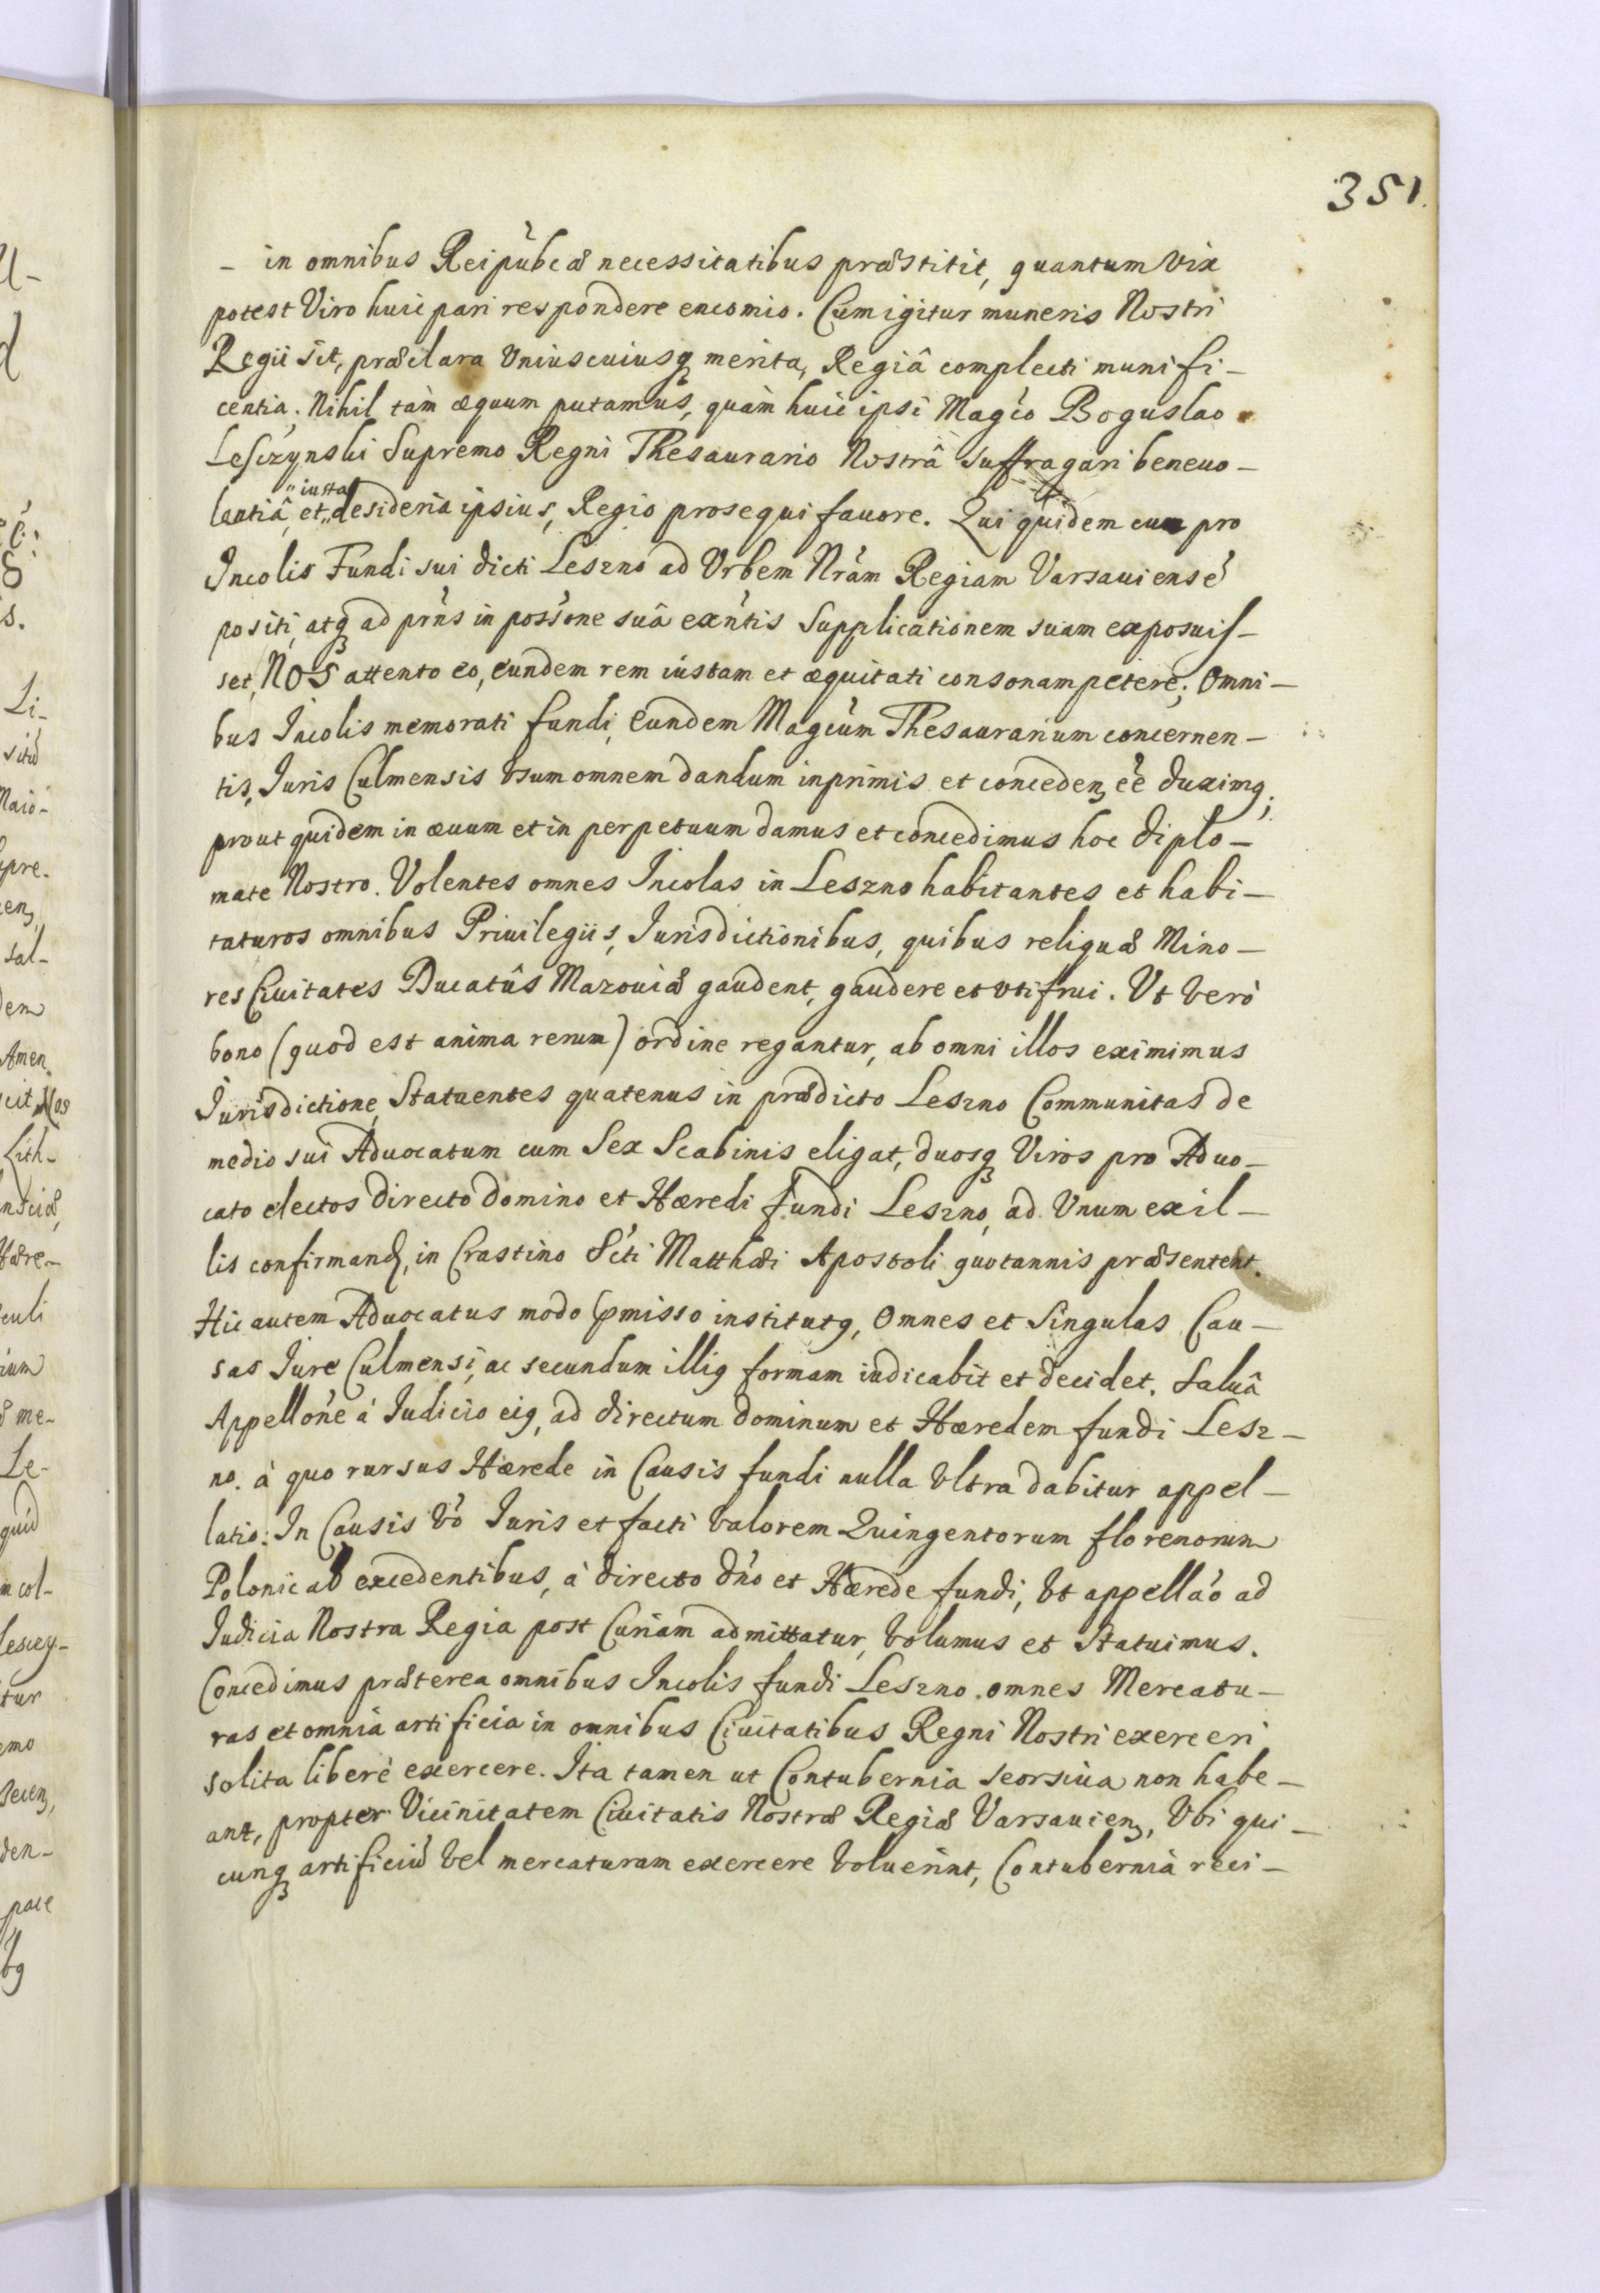 351.
- in omnibus Reipub̀cæ necessitatibus præstitit, quantum vix
potest Viro huic pari respondere encomio. Cum igitur muneris Nostri
Regii sit, præclara Uniuscuiusq̨ merita, Regiâ complecti munifi-
centia; Nihil tàm æquum putamus, quàm huic ipsi Magc̀o Boguslao
Lesczynski Supremo Regni Thesaurario Nostrâ suffragari beneuo-
lentiâ, et "iusta" desideria ipsius, Regio prosequi fauore. Qui quidem cum pro
Incolis Fundi sui dicti Leszno ad Vrbem Nràm Regiam Varsauiensẽ
positi, atq̨ ad prǹs in possòne suâ exǹtis Supplicationem suam exposuis-
set, NOS attento eo, eundem rem iustam et æquitati consonam petere; Omni-
bus Incolis memorati fundi, eundem Magcùm Thesaurarium concernen-
tis, Iuris Culmensis vsum omnem dandum inprimis et concedenʒ eẽ duximꝯ;
prout quidem in æuum et in perpetuum damus et concedimus hoc diplo-
mate Nostro. Volentes omnes Incolas in Leszno habitantes et habi-
taturos omnibus Priuilegiis, Jurisdictionibus, quibus reliquæ Mino-
res Ciuitates Ducatûs Mazouiæ gaudent, gaudere et vti frui. Vt verò
bono (quod est anima rerum) ordine regantur, ab omni illos eximimus
Iurisdictione, Statuentes quatenus in prædicto Leszno Communitas de
medio sui Aduocatum cum Sex Scabinis eligat, duosq̨ Viros pro Aduo-
cato electos directo domino et Hæredi fundi Leszno, ad Vnum ex il-
lis confirmanḍ, in Crastino Sc̀ti Matthæi Apostoli quotannis præsentent.
Hic autem Aduocatus modo p̱misso institutꝯ, Omnes et Singulas Cau-
sas Iure Culmensi, ac secundum illiꝯ formam iudicabit et decidet. Saluâ
Appellòne à Iudicio eiꝯ, ad directum dominum et Hæredem fundi Lesz-
no. à quo rursus Hærede in Causis fundi nulla vltra dabitur appel-
latio: In Causis vò Iuris et facti valorem Quingentorum florenorum
Polonicał excedentibus, à directo dǹo et Hærede fundi, vt appellào ad
Iudicia Nostra Regia post Curiam admittatur, volumus et Statuimus.
Concedimus præterea omnibus Incolis fundi Leszno omnes Mercatu-
ras et omnia artificia in omnibus Ciuitatibus Regni Nostri exerceri
solita liberè exercere. Ita tamen ut Contubernia seorsiua non habe-
ant, propter Vicinitatem Ciuitatis Nostræ Regiæ Varsauienʒ, Vbi qui-
cunq̨ artificiũ vel mercaturam exercere voluerint, Contubernia reci-